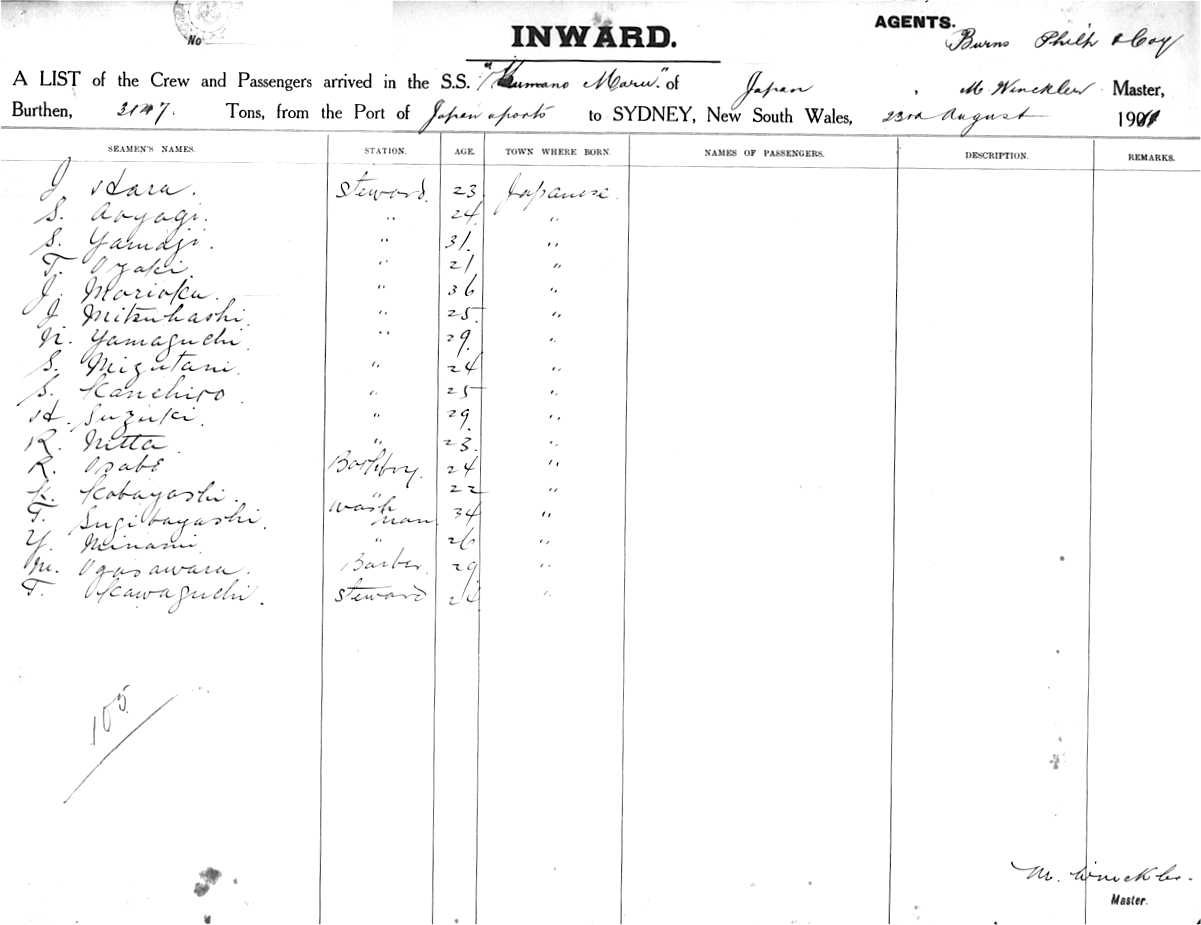 AGENTS.
No
INWARD.
Burns Philp & Coy
A LIST of the Crew and Passengers arrived in the S.S. "Kumano Maru" of Japan, M Winckler Master,
Burthen, Tons, from the Port of Japan ports to SYDNEY, New South Wales, 23rd August 1911
SEAMEN'S NAMES. STATION. AGE. TOWN WHERE BORN. NAMES OF PASSENGERS. DESCRIPTION. REMARKS.
J. Hara. Steward. 23. Japanese.
S. Aoyagi. " 24 "
S. Yamaji. " 31. "
T. Ozaki. " 21 "
J. Morioka. " 36 "
J. Mitsuhashi. " 25. "
N. Yamaguchi. " 29. "
S. Mizutani. " 24 "
S. Kanehiro. " 25 "
H. Suzuki. " 29. "
R. Nitta. " 23. "
R. Osabe 24 "
K. Kobayashi. " 22 "
T. Sugibayashi. Wash man 34 "
Y. Minami. " 26 "
M. Ogasawara. Barber. 29 "
T. Kawaguchi. Steward "
105
M. Winckler.
Master.